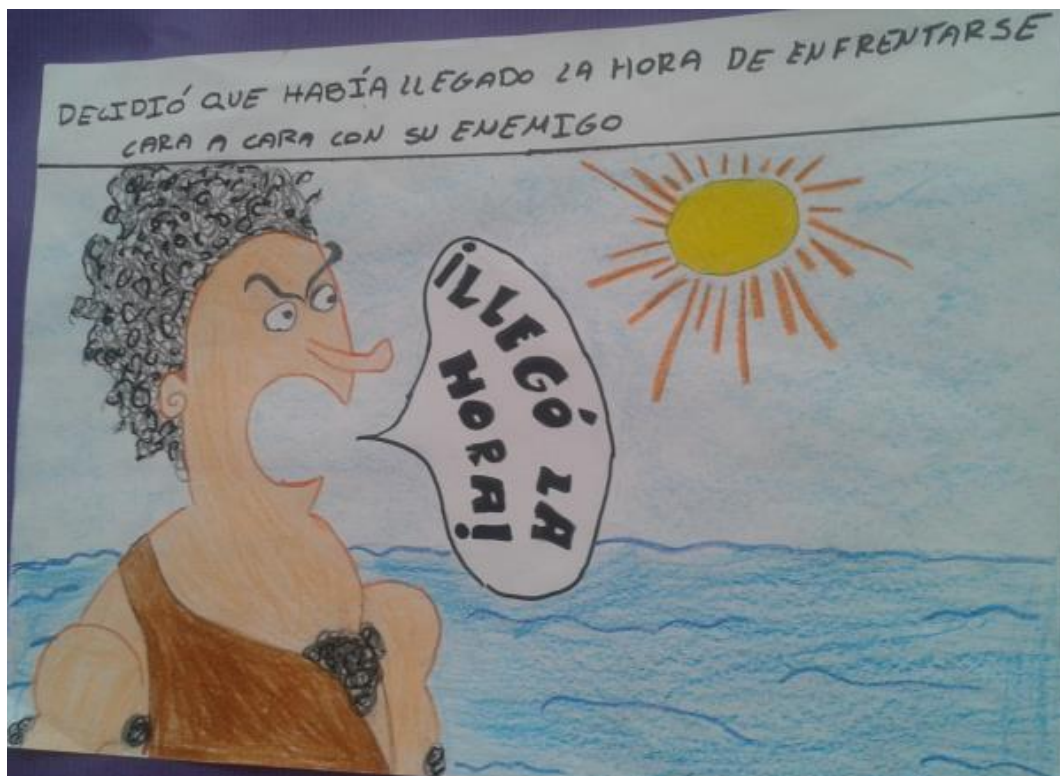 DECIDIÓ QUE HABÍA LLEGADO LA HORA DE ENFRENTARSE
CARA A CARA CON SU ENEMIGO
¡LLEGÓ LA
HORA!